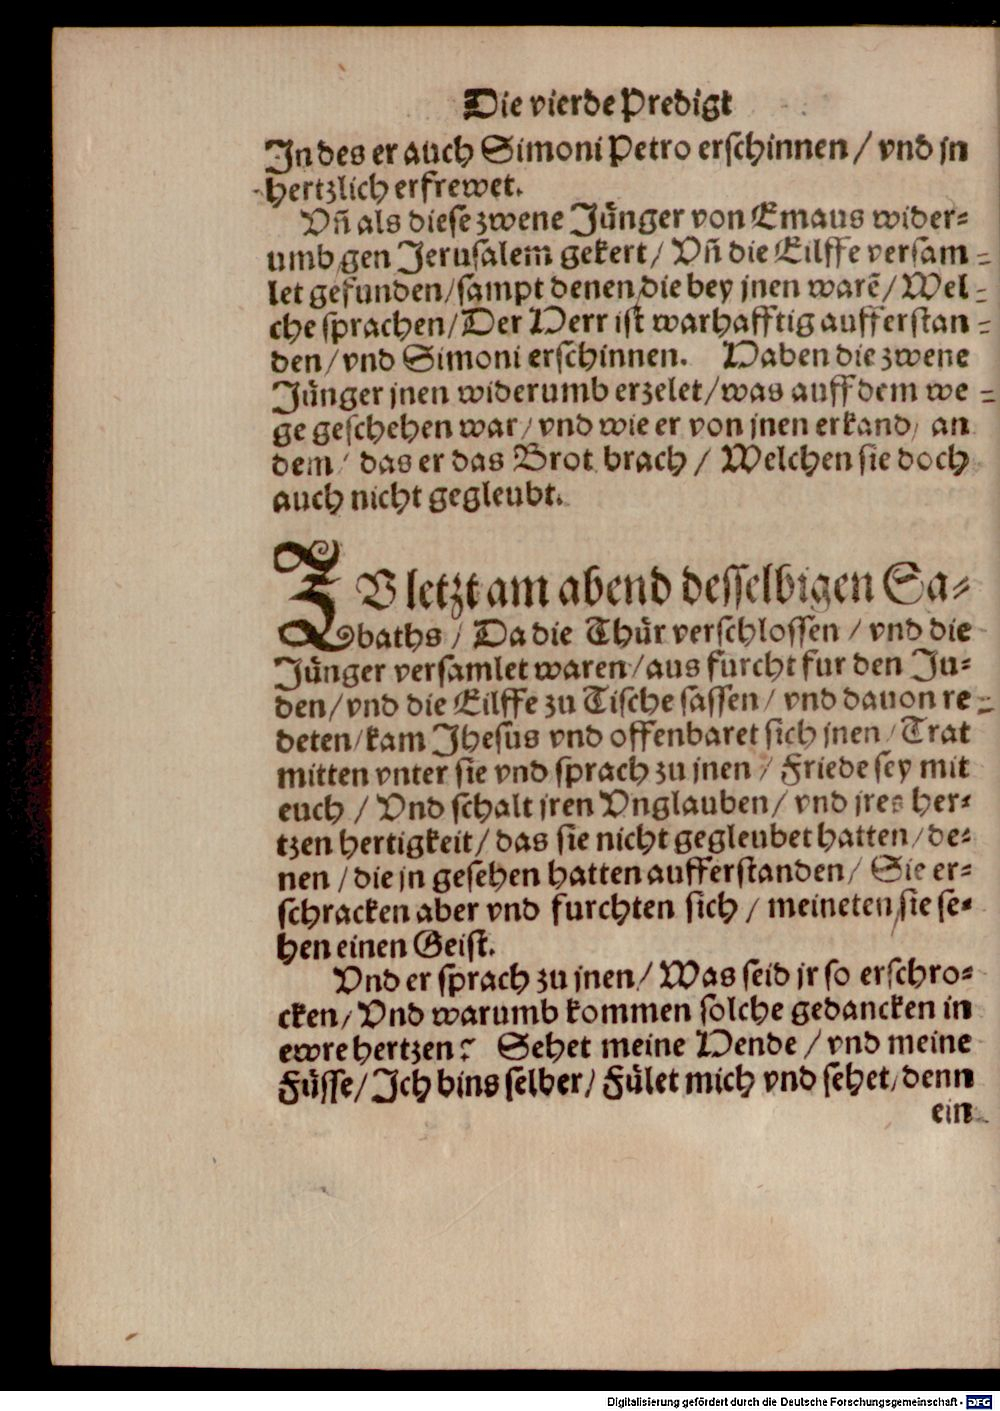 Die vierde Predigt
In des er auch Simoni Petro erschinnen / vnd jn
hertzlich erfrewet.
Vñ als diese zwene Jünger von Emaus wider-
umb gen Jerusalem gekert / Vñ die Eilffe versam-
let gefunden / sampt denen / die bey jnen warẽ / Wel-
che sprachen / Der Herr ist warhafftig aufferstan-
den / vnd Simoni erschinnen. Haben die zwene
Jünger jnen widerumb erzelet / was auff dem we-
ge geschehen war / vnd wie er von jnen erkand / an
dem / das er das Brot brach / Welchen sie doch
auch nicht gegleubt.
ZV letzt am abend desselbigen Sa-
baths / Da die Thür verschlossen / vnd die
Jünger versamlet waren / aus furcht fur den Jü-
den / vnd die Eilffe zu Tische sassen / vnd dauon re-
deten / kam Jhesus vnd offenbaret sich jnen / Trat
mitten vnter sie vnd sprach zu jnen / Friede sey mit
euch / Vnd schalt jren Vnglauben / vnd jres her-
tzen hertigkeit / das sie nicht gegleubet hatten / de-
nen / die jn gesehen hatten aufferstanden / Sie er-
schracken aber vnd furchten sich / meineten / sie se-
hen einen Geist.
Vnd er sprach zu jnen / Was seid jr so erschro-
cken / Vnd warumb kommen solche gedancken in
ewre hertzen? Sehet meine Hende / vnd meine
Füsse / Ich bins selber / Fület mich vnd sehet / denn
ein
Digitalisierung gefördert durch die Deutsche Forschungsgemeinschaft - DFG